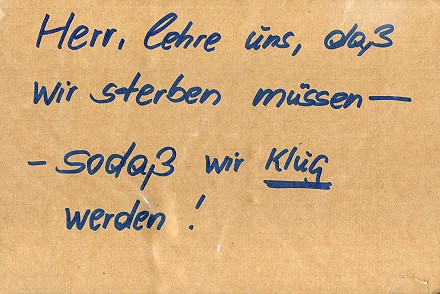 Herr, lehre uns, daß
wir sterben müssen —
- sodaß wir klug
werden!